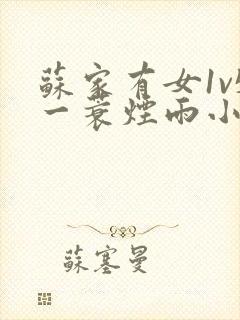 蘇家有女1v
一蓑煙雨小
蘇塞曼